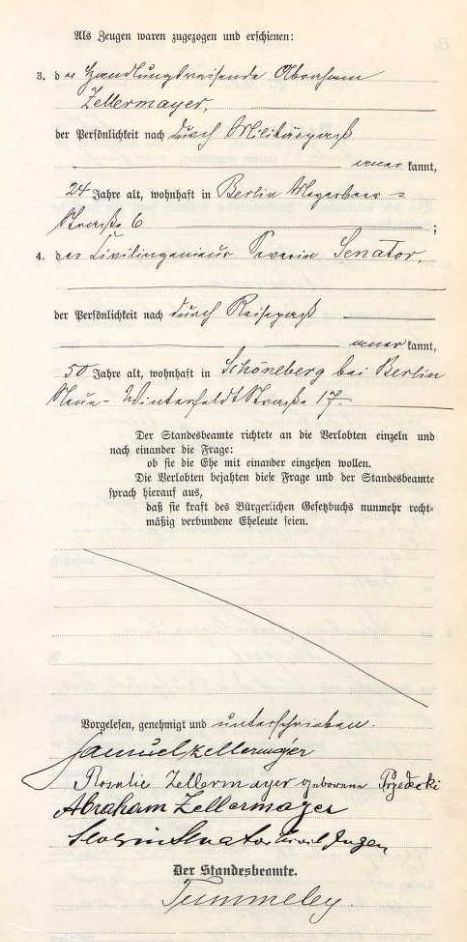 Als Zeugen waren zugezogen und erschienen:
3. der Handlungsreisende Abraham
Zellermayer,
der Persönlichkeit nach durch Militärpaß
anerkannt,
24 Jahre alt, wohnhaft in Berlin Meyerbeer=
Straße 6 ;
4. der Civilingenieur Severin Senator,
der Persönlichkeit nach durch Reisepaß
anerkannt,
50 Jahre alt, wohnhaft in Schöneberg bei Berlin
Neue- Winterfeldt Straße 17.
Der Standesbeamte richtete an die Verlobten einzeln und
nach einander die Frage:
ob sie die Ehe mit einander eingehen wollen.
Die Verlobten bejahten diese Frage und der Standesbeamte
sprach hierauf aus,
daß sie kraft des Bürgerlichen Gesetzbuchs nunmehr recht-
mäßig verbundene Eheleute seien.
Vorgelesen, genehmigt und unterschrieben.
Samuel Zellermayer
Rosalie Zellermayer geborene Przedecki
Abraham Zellermayer
Severin Senator Civil Ingen
Der Standesbeamte.
Tummeley.